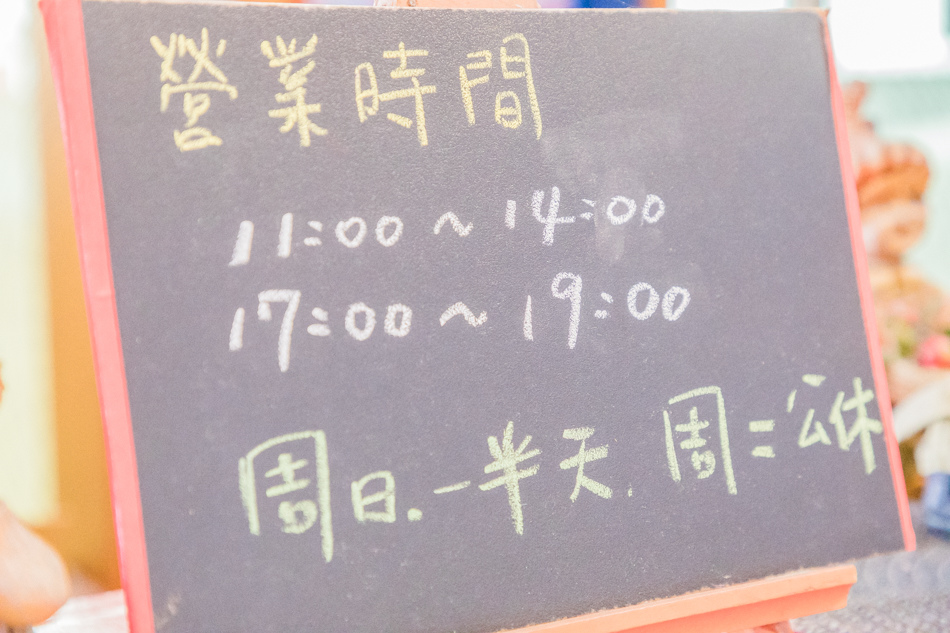 營業時間
11:00~14:00
17:00~19:00
周日.一半天.周二公休